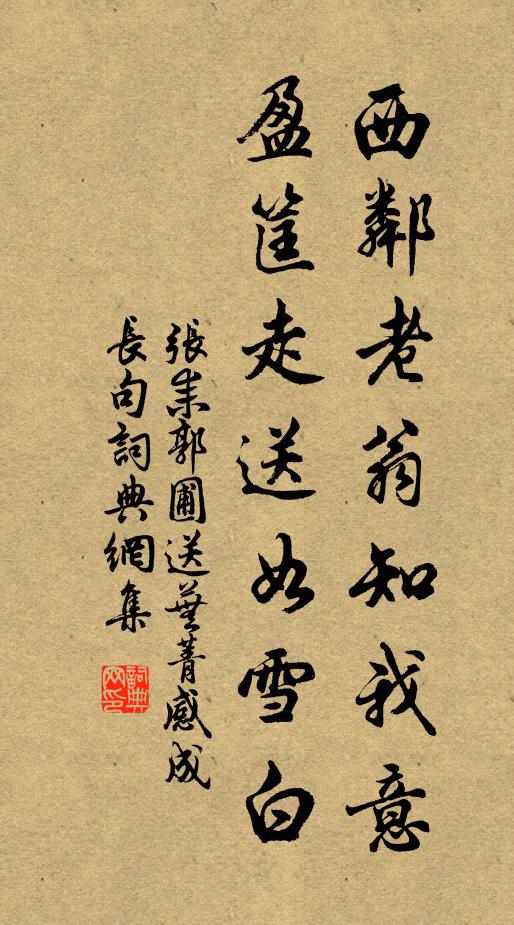 西鄰老翁知我意
盈筐走送如雪白
張耒郭圃送蕪菁感成
長句詞典網集
詞典
网印